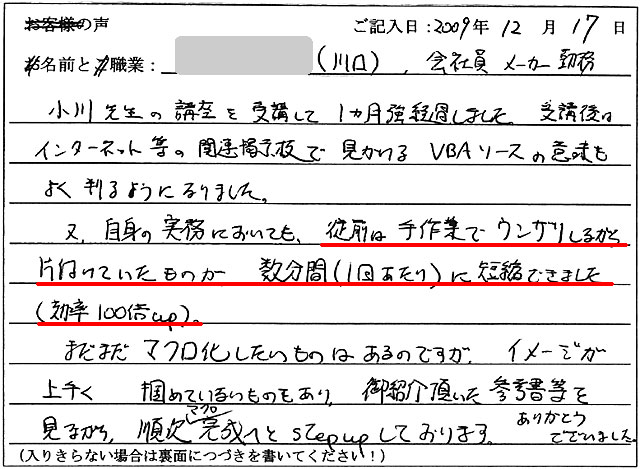 お客様の声 ご記入日:2009年 12 月 17 日
お名前とご職業: (川口), 会社員 メーカー勤務
小川先生の講座を受講して1ヵ月強経過しました。受講後は
インターネット等の関連掲示板で見かけるVBAソースの意味も
よく判るようになりました。
又、自身の実務においても、従前は手作業でウンザリしながら
片付けていたものが 数分間(1回あたり)に短縮できました
(効率100倍up)。
まだまだマクロ化したいものはあるのですが、イメージが
上手く 掴めていないものもあり、御紹介頂いた参考書等を
見ながら、順次マクロ完成へとstep upしております。ありがとう
ございました。
(入りきらない場合は裏面につづきを書いてください!)